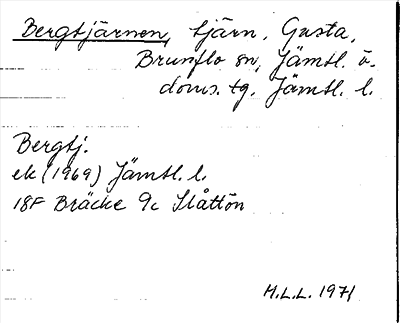 Bergtjärnen, tjärn, Gusta,
Brunflo sn, Jämtl. ö.
doms. tg. Jämtl. l.
Bergtj.
ek (1969) Jämtl. l.
18F Bräcke 9c Slåttön
M.L.L. 1971